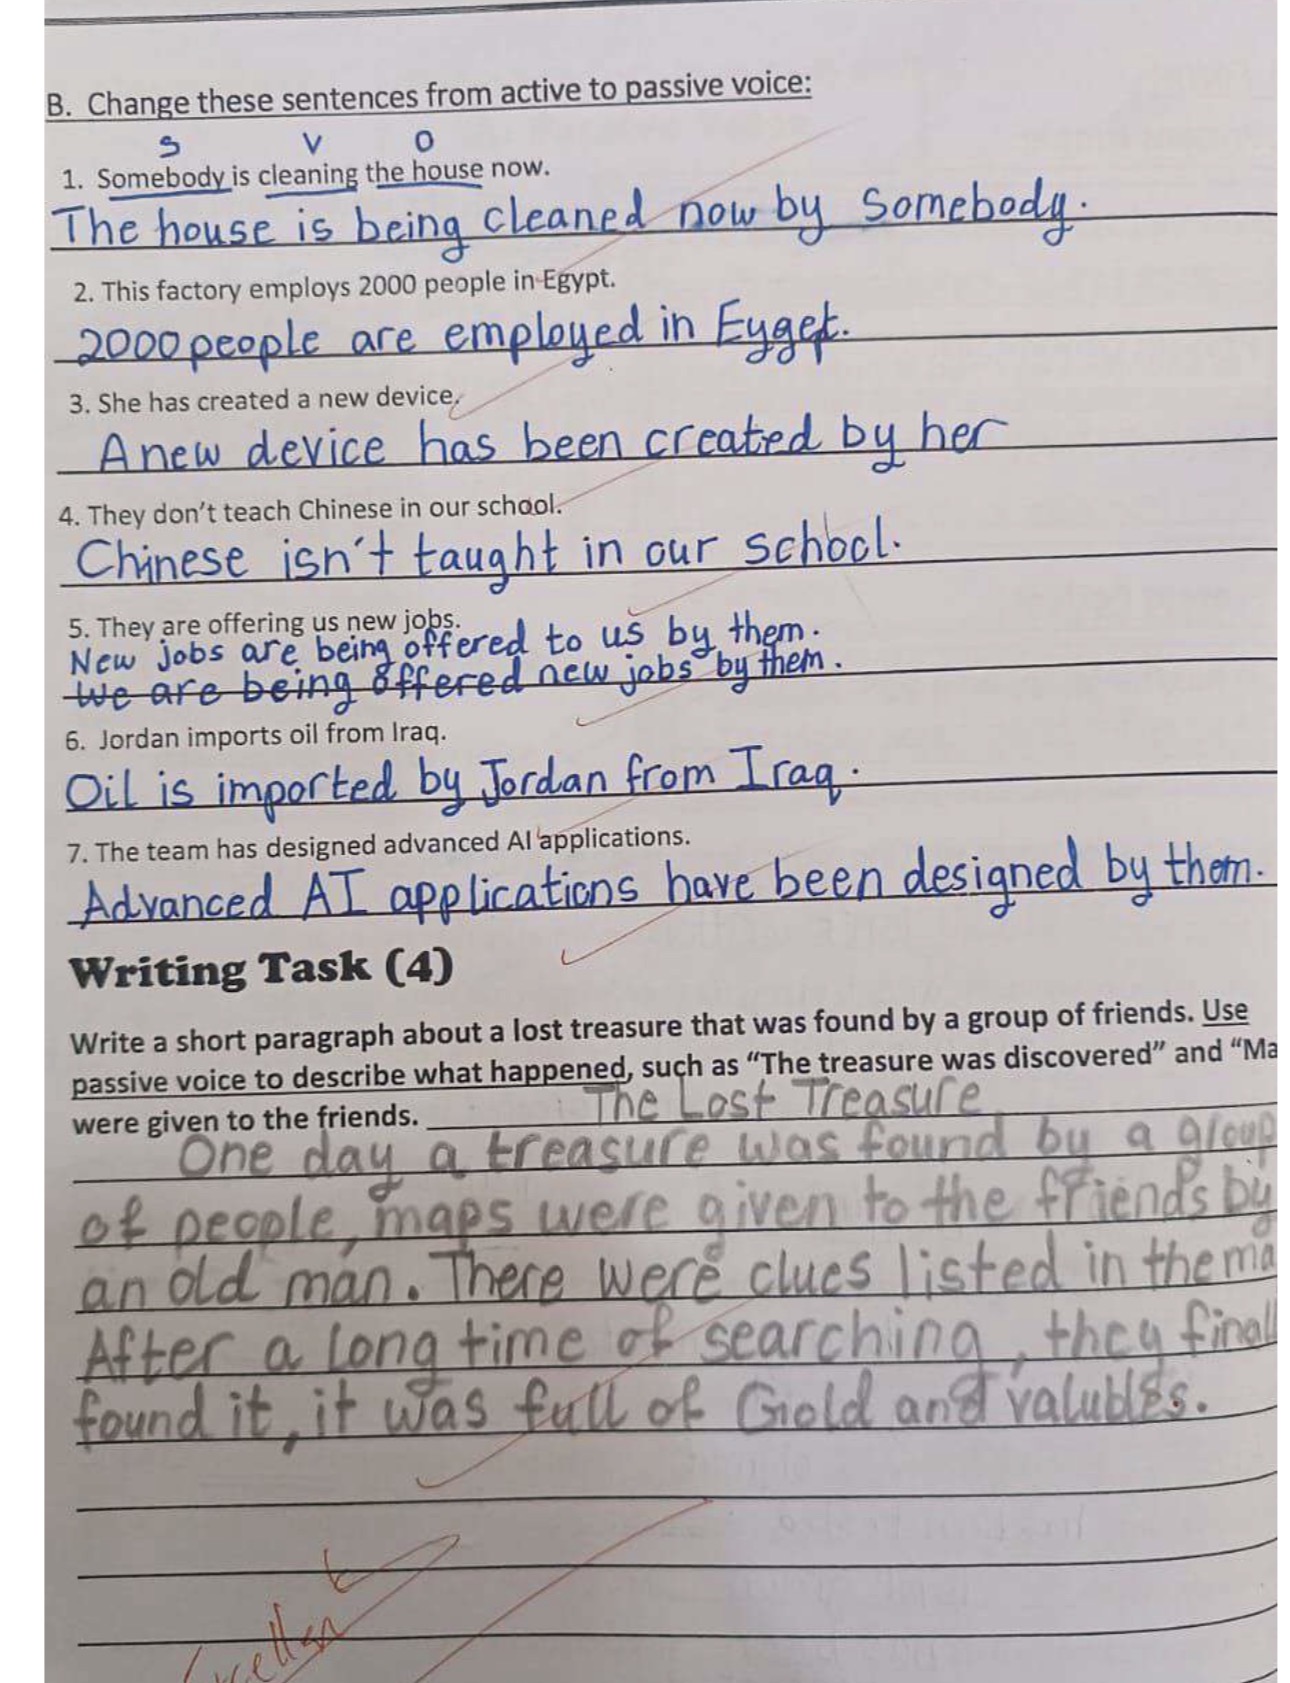 B. Change these sentences from active to passive voice:
S V O
1. Somebody is cleaning the house now.
The house is being cleaned now by somebody.
2. This factory employs 2000 people in Egypt.
2000 people are employed in Eygept.
3. She has created a new device.
A new device has been created by her
4. They don't teach Chinese in our school.
Chinese isn't taught in our school.
5. They are offering us new jobs.
New jobs are being offered to us by them.
We are being offered new jobs by them.
6. Jordan imports oil from Iraq.
Oil is imported by Jordan from Iraq.
7. The team has designed advanced AI applications.
Advanced AI applications have been designed by them.
Writing Task (4)
Write a short paragraph about a lost treasure that was found by a group of friends. Use
passive voice to describe what happened, such as "The treasure was discovered" and "Ma
were given to the friends.
The Lost Treasure
One day a treasure was found by a group
of people, maps were given to the friends by
an old man. There were clues listed in the ma
After a long time of searching, they finall
found it, it was full of Gold and valubles.